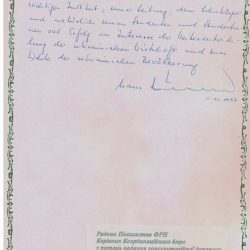 Institut, seiner Leitung, dem Lehrkörper
und natürlich seinen Studenten und Studentin-
nen viel Erfolg im Interesse der Weiterentwick-
lung der ukrainischen Wirtschaft und zum
Wohle der ukrainischen Bevölkerung
Радник Посольства ФРН
Керівник Координаційного бюро
з питань надання консультаційної допомоги